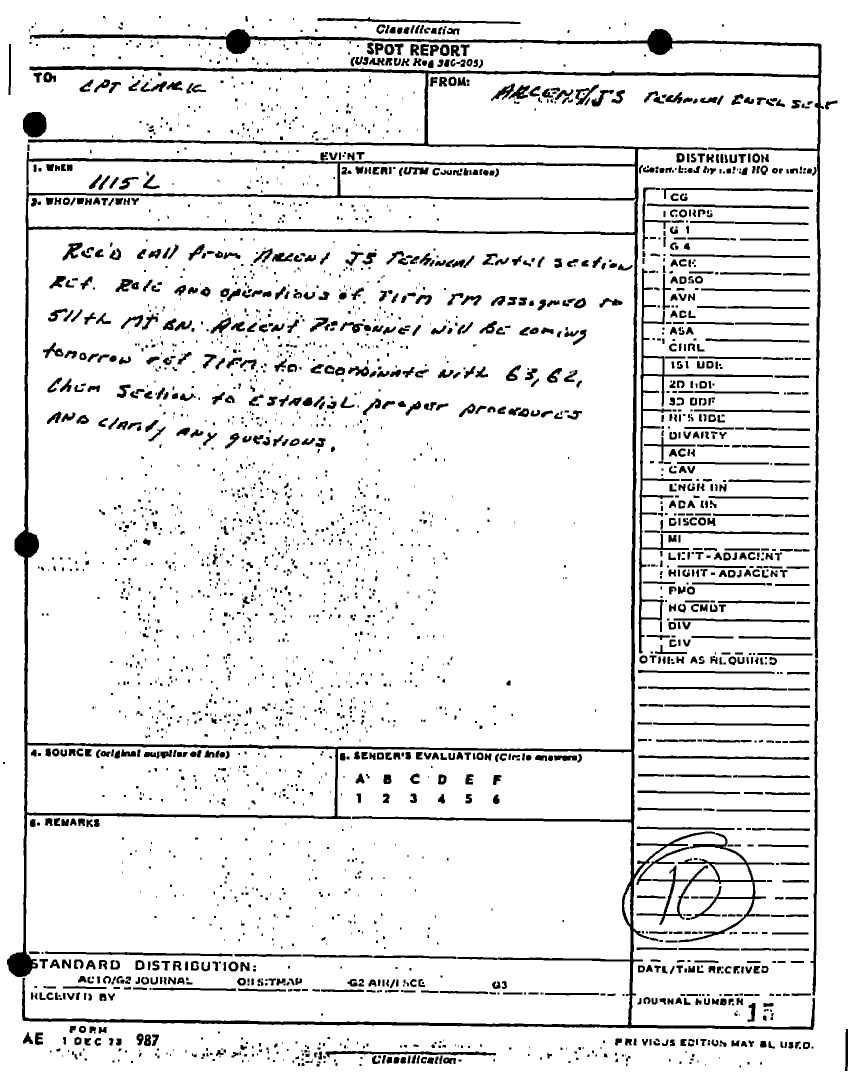 Classification
SPOT REPORT
(USAREUR Reg 380-205)
TO: CPT CLARK
FROM: ARCENT/J5 Technical Entel Sect
EVENT
1. WHEN 1115 L
2. WHERE (UTM Coordinates)
3. WHO/WHAT/WHY
Rec'd call from Arcent J5 Techincal Entel section
Ref. Role and operations of TIFM TM Assigned to
511th MI BN. Arcent Personnel will be coming
tomorrow ref TIFM to coordinate with G3, G2,
Chem Section to establish proper procedures
and clarify any questions.
DISTRIBUTION
(determined by using HQ or units)
CG
CORPS
G 1
G 4
ACE
ADSO
AVN
ADL
ASA
CHRL
1ST BDE
2D BDE
3D BDE
RES BDE
DIVARTY
ACR
CAV
ENGR BN
ADA BN
DISCOM
MI
LEFT-ADJACENT
RIGHT-ADJACENT
PMO
HQ CMDT
DIV
DIV
OTHER AS REQUIRED
4. SOURCE (original supplier of info)
5. SENDER'S EVALUATION (Circle answers)
A B C D E F
1 2 3 4 5 6
6. REMARKS
10
STANDARD DISTRIBUTION:
G2 JOURNAL SITMAP G2 AIR G3
RECEIVED BY
DATE/TIME RECEIVED
JOURNAL NUMBER 15
AE FORM 1 DEC 73 987
PREVIOUS EDITION MAY BE USED.
Classification